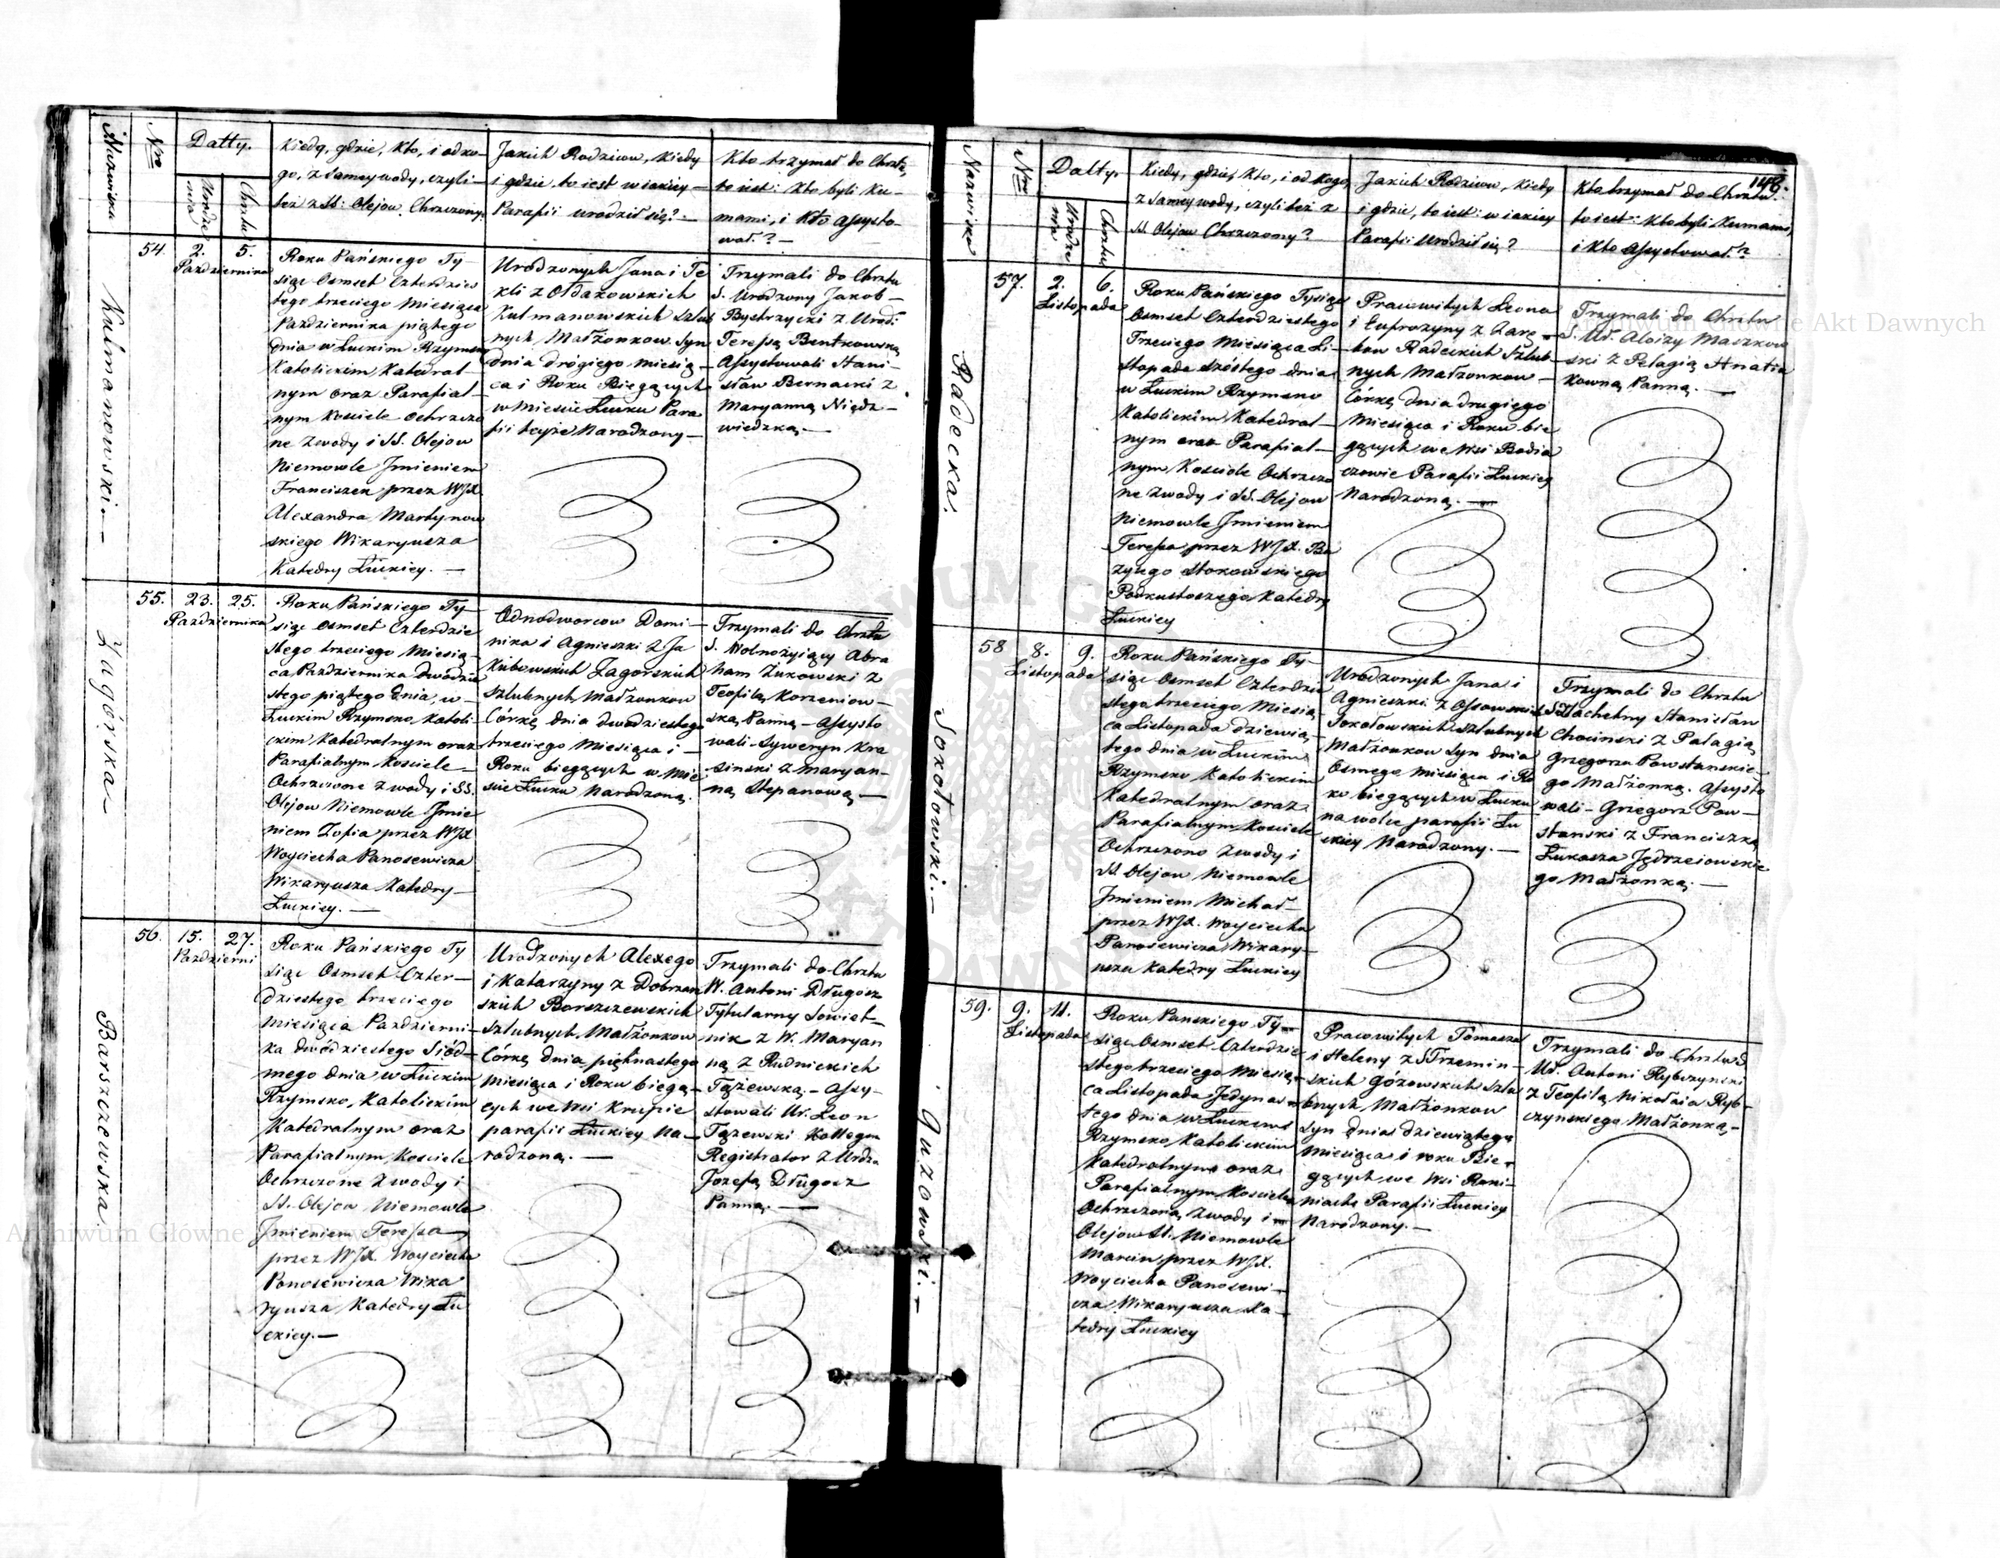 Nazwiska
Nro
Datty.
Urodze
nia
Chrztu
Kiedy, gdzie, kto, i od ko-
go, z samey wody, czyli-
też z SS: Olejow Chrzczony.
Jakich Rodzicow, kiedy
i gdzie to iest w iakiey-
Parafii urodził się?-
Kto trzymał do Chrztu,
to iest: kto byli Ku-
mami, i kto assysto
wał?-
Kulmanowski-
54.
2.
5.
Pazdziernika
Roku Pańskiego Ty-
siąc Osmset Czterdzies
tego trzeciego Miesiąca
Pazdziernika piątego
dnia w Łuckim Rzymsko
Katolickim Katedral-
nym oraz Parafial-
nym Kosciele Ochrzczo
ne z wody i SS. Olejow
Niemowle Jmieniem
Franciszek przez WJX
Alexandra Martynow
skiego Wikaryusza
Katedry Łuckiey.-
Urodzonych Jana i Te
kli z Ołdakowskich
Kulmanowskich Szlub
nych Małżonkow Syn
dnia drógiego Miesią-
ca i Roku Biegących
w Miescie Łucku Para
fii teyże Narodzony-
Trzymali do Chrztu
S. Urodzony Jakob-
Bystrzycki z Urod:
Teressą Bentkowską
Assystowali Stani-
sław Biernacki z
Maryanną Niedz-
wiedzką.-
Zagórska-
55.
23.
25.
Pazdziernika
Roku Pańskiego Ty-
siąc Osmset Czterdzie
stego trzeciego Miesią-
ca Pazdziernika dwódzie
stego piątego dnia, w-
Łuckim Rzymsko, Katoli-
ckim Katedralnym oraz
Parafialnym Kosciele-
Ochrzczone z wody i SS.
Olejow Niemowle Jmie
niem Zofia przez WJX
Woyciecha Panosewicza
Wikaryusza Katedry-
Łuckiey.-
Odnodworcow Domi-
nika i Agnieszki z Ja
kubowskich Zagorskich
Szlubnych Małżonkow
Córkę dnia dwodziestego
trzeciego Miesiąca i-
Roku biegących w Mie
scie Łucku Narodzoną.
Trzymali do Chrztu
S. Wolnożyiący Abra
ham Zukowski z
Teofilą Korzeniow-
ską Panną- Assysto
wali- Syweryn Kra
sinski z Maryan-
ną Stepanową-
Barszczewska
56.
15.
27.
Pazdzierni
Roku Pańskiego Ty
siąc Osmset Czter-
dziestego trzeciego
Miesiąca Pazdzierni-
ka dwódziestego Siód-
mego dnia w Łuckim
Rzymsko, Katolickim
Katedralnym oraz
Parafialnym Kosciele
Ochrzczone z wody i
SS. Olejow Niemowle
Jmieniem Teressa-
przez WJX. Woyciecha
Panosewicza Wika
ryusza Katedry Łu
ckiey.-
Urodzonych Alexego
i Katarzyny z Dobrzan
skich Barszczewskich
Szlubnych Małżonkow
Córkę dnia piętnastego
Miesiąca i Roku biegą-
cych we Wsi Krupie
parafii Łuckiey Na-
rodzoną.-
Trzymali do Chrztu
W. Antoni Długosz
Tytularny Sowiet-
nik z W. Maryan
ną z Rudnickich
Tążewską.- Assy-
stowali Ur. Leon
Tążewski Kollegen
Registrator z Urdz.
Jozefą Długosz
Panną.-
Nazwiska
Nro
Datty.
Urodze
nia
Chrztu
Kiedy, gdzie, kto, i od kogo,
z samey wody, czyli też z
SS. Olejow Chrzczony?
Jakich Rodzicow, kiedy
i gdzie, to iest: w iakiey
Parafii Urodził się?
Kto trzymał do Chrztu:
to iest: kto byli Kumami,
i kto assystował?
148.
Radecka.
57.
2.
6.
Listopada
Roku Pańskiego Tysiąc
Osmset Czterdziestego
Trzeciego Miesiąca Li-
stopada szóstego dnia
w Łuckim Rzymsko
Katolickim Katedral-
nym oraz Parafial-
nym Kosciele Ochrzczo
ne z wody i SS. Olejow
Niemowle Jmieniem
Teressa przez WJX. Ba
zyego Stokowskiego
Podkustoszego Katedry
Łuckiey
Pracowitych Leona
i Eufrozyny z
Radeckich Szlub-
nych Małżonkow-
Córkę dnia drugiego
Miesiąca i Roku bie
gących we Wsi Bodia
czowie Parafii Łuckiey
Narodzoną.-
Trzymali do Chrztu
S. Ur. Aloizy Maczkow
ski z Pelagią Hnatiu
kowną Panną.-
Sokołowski.-
58
8.
9.
Listopada
Roku Pańskiego Ty-
siąc Osmset Czterdzie
stego trzeciego Miesią-
ca Listopada dziewią-
tego dnia w Łuckim
Rzymsko Katolickim
Katedralnym oraz
Parafialnym Kosciele
Ochrzczono z wody i
SS. Olejow Niemowle
Jmieniem Michał-
przez WJX. Woyciecha
Panosewicza Wikary-
usza Katedry Łuckiey
Urodzonych Jana i
Agnieszki z Ossowskich
Sokołowskich Szlubnych
Małżonkow Syn dnia
Osmego Miesiąca i Ro
ku biegących w Łucku
na wolce parafii Łu
ckiey Narodzony.-
Trzymali do Chrztu
S. Szlachetny Stanisław
Chocinski z Palagią
Grzegorza Powstanskie-
go Małżonką. Assysto
wali- Grzegorz Pow-
stanski z Franciszką
Łukasza Jędrzeiowskie
go Małżonką.-
Guzowski.-
59.
9.
11.
Listopada
Roku Panskiego Ty-
siąc Osmset Czterdzie
stego trzeciego Miesią-
ca Listopada Jedynas-
tego dnia w Łuckim
Rzymsko, Katolickim
Katedralnym oraz
Parafialnym Kosciele
Ochrzczona z wody i
Olejow SS. Niemowle
Marcin przez WJX.
Woyciecha Panosewi-
cza Wikaryusza Ka-
tedry Łuckiey
Pracowitych Tomasza
i Heleny z Strzemin-
skich Gózowskich Szlu
bnych Małżonkow
Syn dnia dziewiątego
Miesiąca i roku Bie-
gących we Wsi Rowi-
niach Parafii Łuckiey
Narodzony.-
Trzymali do Chrztu S
Ur. Antoni Rybczynski
z Teofilą Nikołaia Ryb-
czynskiego Małżonką-
Archiwum Główne Akt Dawnych
Archiwum Główne Akt Dawnych